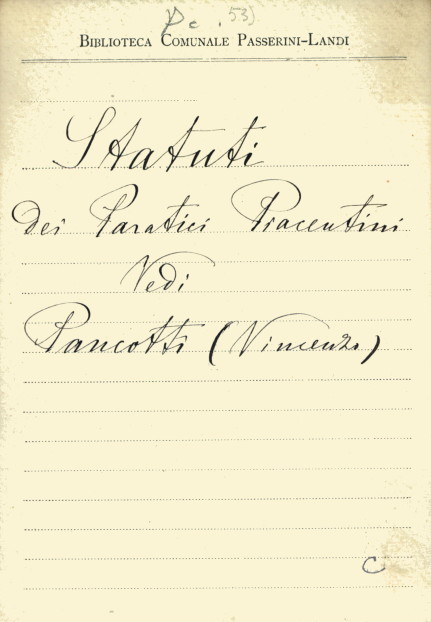 Pc. 53)
BIBLIOTECA COMUNALE PASSERINI-LANDI
Statuti
dei Paratici Piacentini
Vedi
Pancotti (Vincenzo)
C